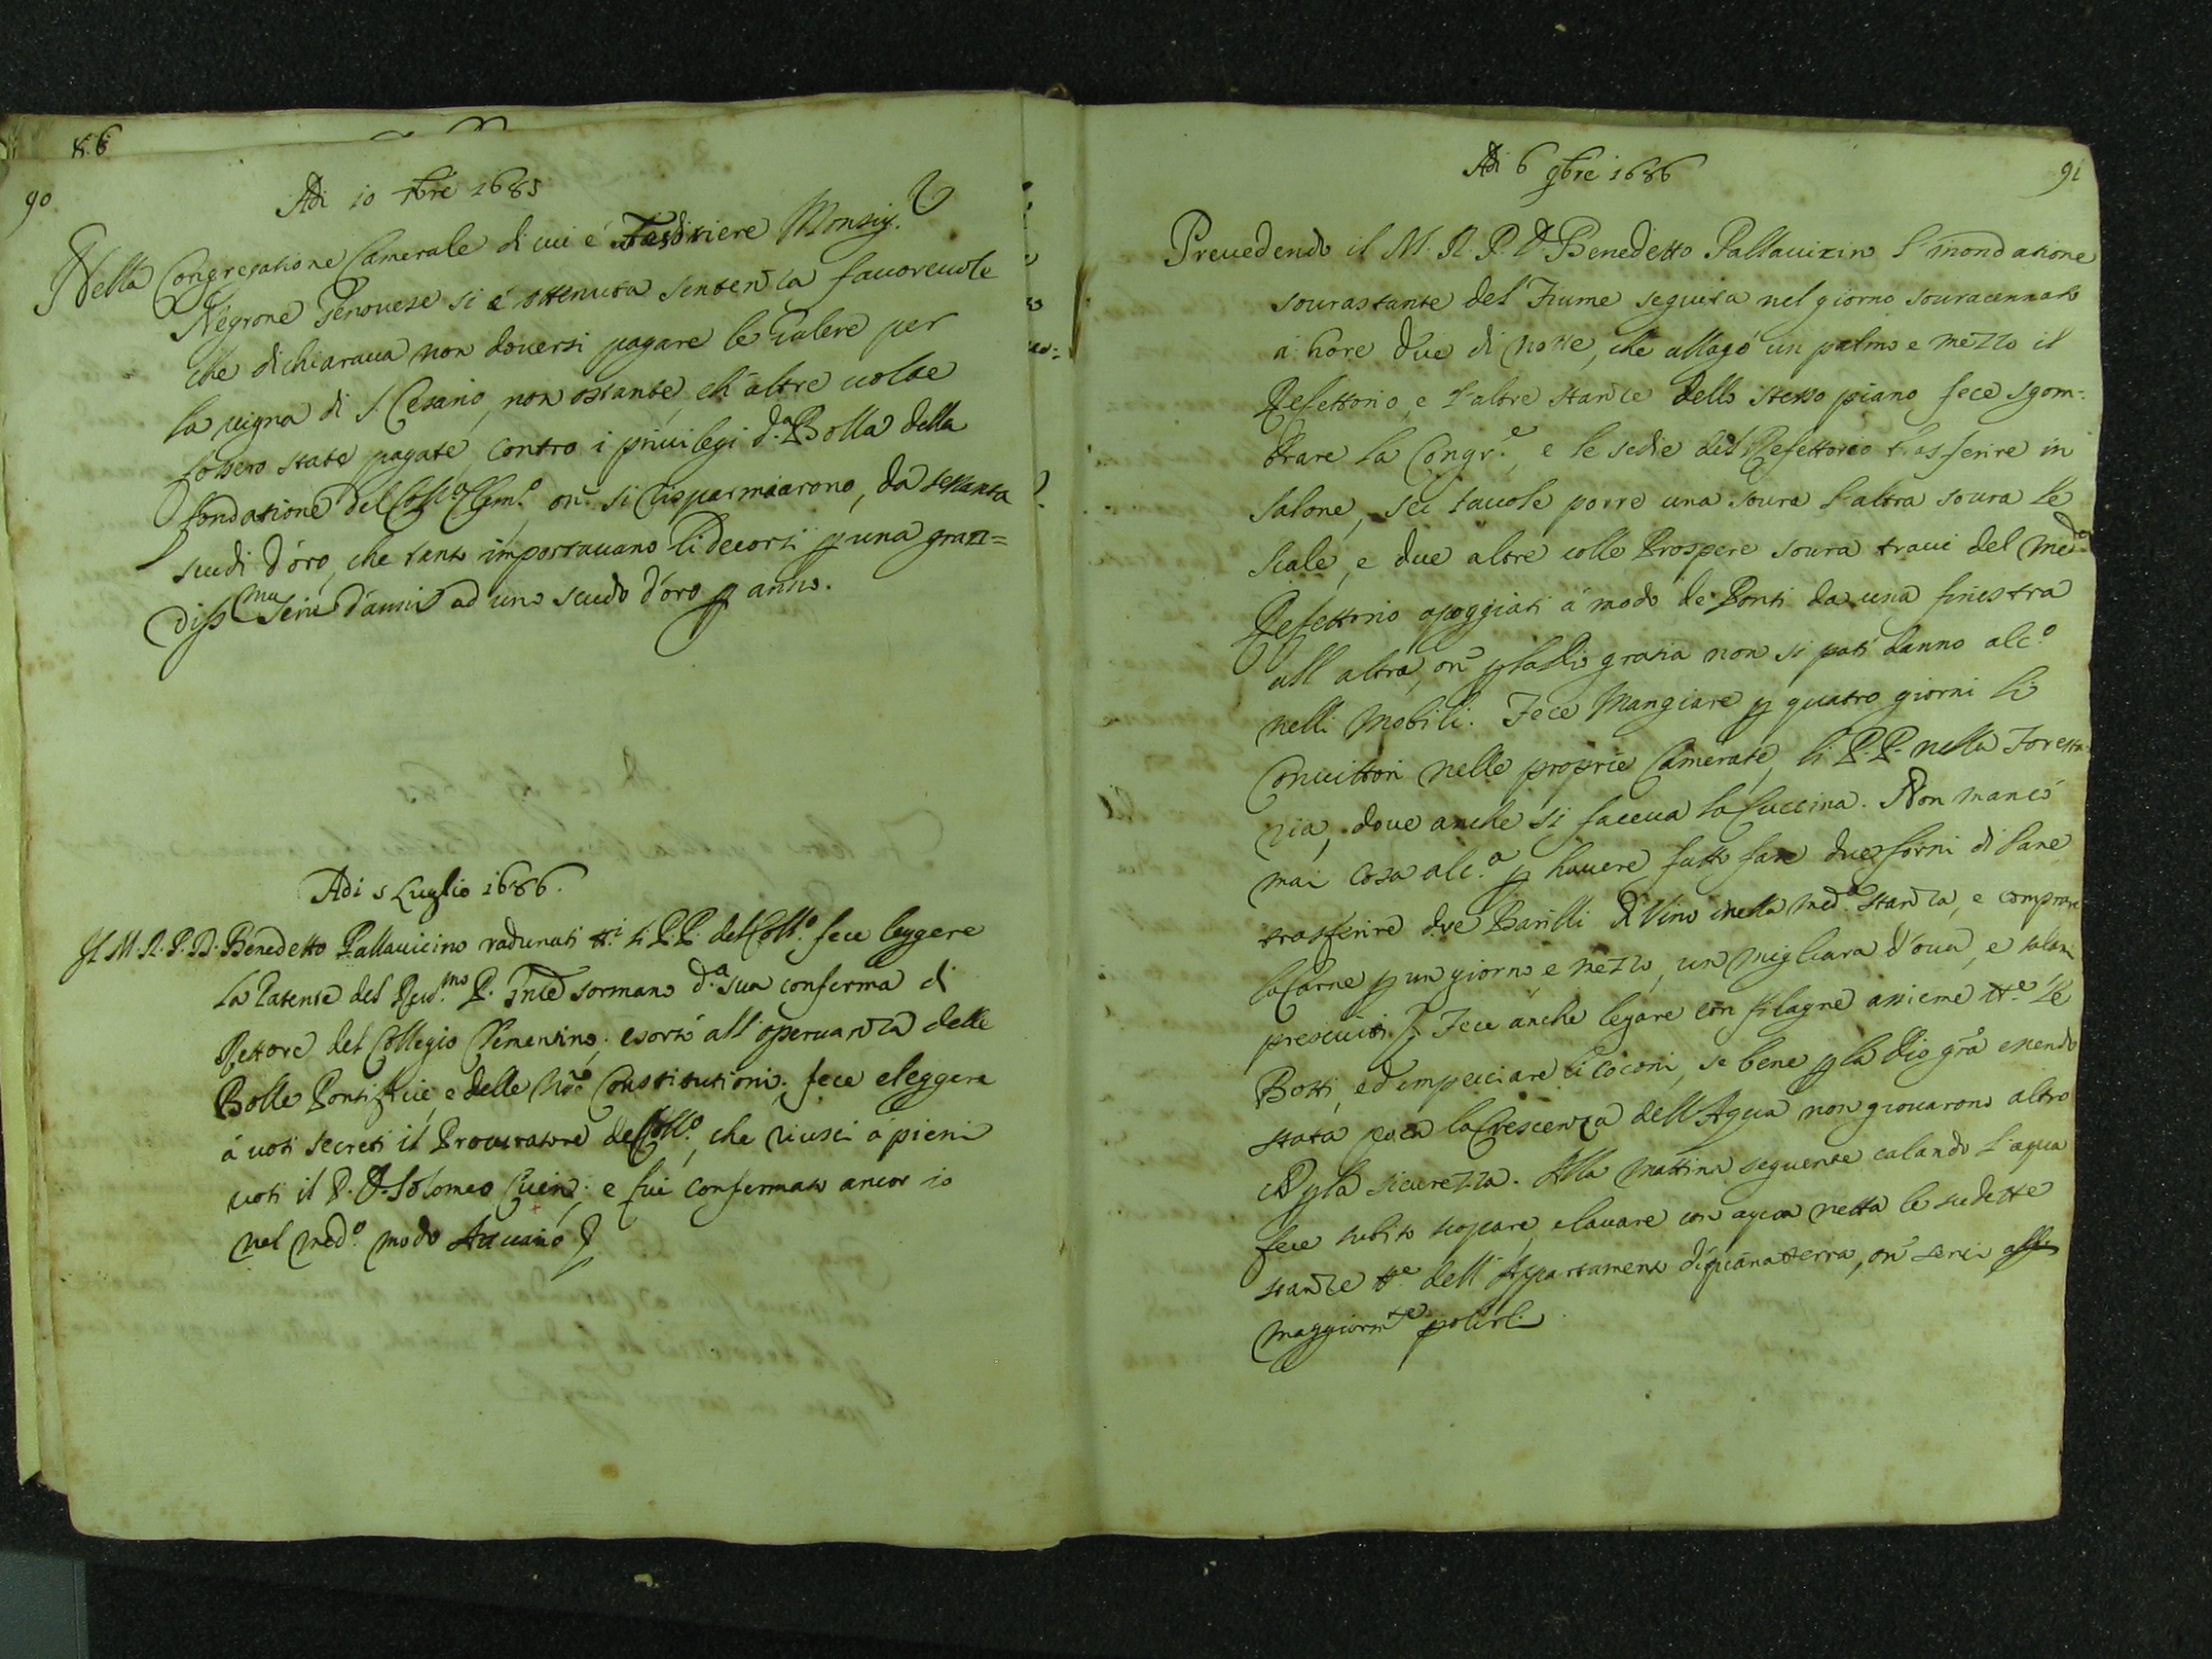 90
Adi 10 Xbre 1685
Nella Congregatione Camerale di cui é Tesoriere Monsig.r
Negrone Genouese si é ottenuta sentenza fauoreuole
che dichiaraua non douersi pagare le per
la uigna di S. Cesario, non ostante, ch'altre uolte
fossero state pagate, contro i priuilegi d.a Bolla della
fondatione del Coll.o Clem.o, on si risparmiarono, da settanta
scudi d'oro, che tanto importauano li decorsi p una gran=
diss.ma serie d'anni ad uno scudo d'oro p anno.
Adi 5 Luglio 1686.
Il M. R. P. D. Benedetto Pallauicino radunati tt.i li P.P. del Coll.o fece leggere
la Patente del Reu.mo P. Gnle Sormano d.a sua conferma di
Rettore del Collegio Clementino; esortó all'osseruanza delle
Bolle Pontificie, e delle nre Constitutioni; fece eleggere
á uoti secreti il Procuratore del Coll.o, che riusci á pieni
uoti il P. D. ; e fui confermato ancor io
nel med.o modo Attuario
91
Adi 6 9bre 1686
Preuedendo il M. R. P. D. Benedetto Pallauicin l'inondatione
sourastante del Fiume seguita nel giorno souracennato
a hore due di notte, che allagó un palmo e mezzo il
Refettorio, e l'altre stanze dello stesso piano fece sgom=
brare la Congr.e, e le sedie del Refettorio trasferire in
Salone, sei tauole porre una soura l'altra soura le
Scale, e due altre colle Prospere soura traui del med.o
Refettorio apoggiati á modo de Ponti da una finestra
all'altra, on p la Dio gratia non si pati danno alc.o
nelli mobili. Fece Mangiare p quatro giorni li
Conuittori nelle proprie Camerate, li P.P. nella Foreste=
ria, doue anche si faceua la Cuccina. Non mancó
mai cosa alc.a p hauere fatto fare due forni di Pane
trasferire due Barilli di Vino nella med.a stanza, e comprare
la Carne p un giorno, e mezzo, un migliara d'oua, e salami
presciuti. Fece anche legare con filagne assieme tt.e le
Botti, ed impeciare li Coconi, se bene p la Dio gra essendo
stata poca la Crescenza dell'Aqua non giouarono altro
che p la sicurezza. Alla mattina seguente calando l'aqua
fece subito scopare, e lauare con aqua netta le sudette
stanze tt.e dell'Appartamento di piana terra, on
maggiorm.te polirli